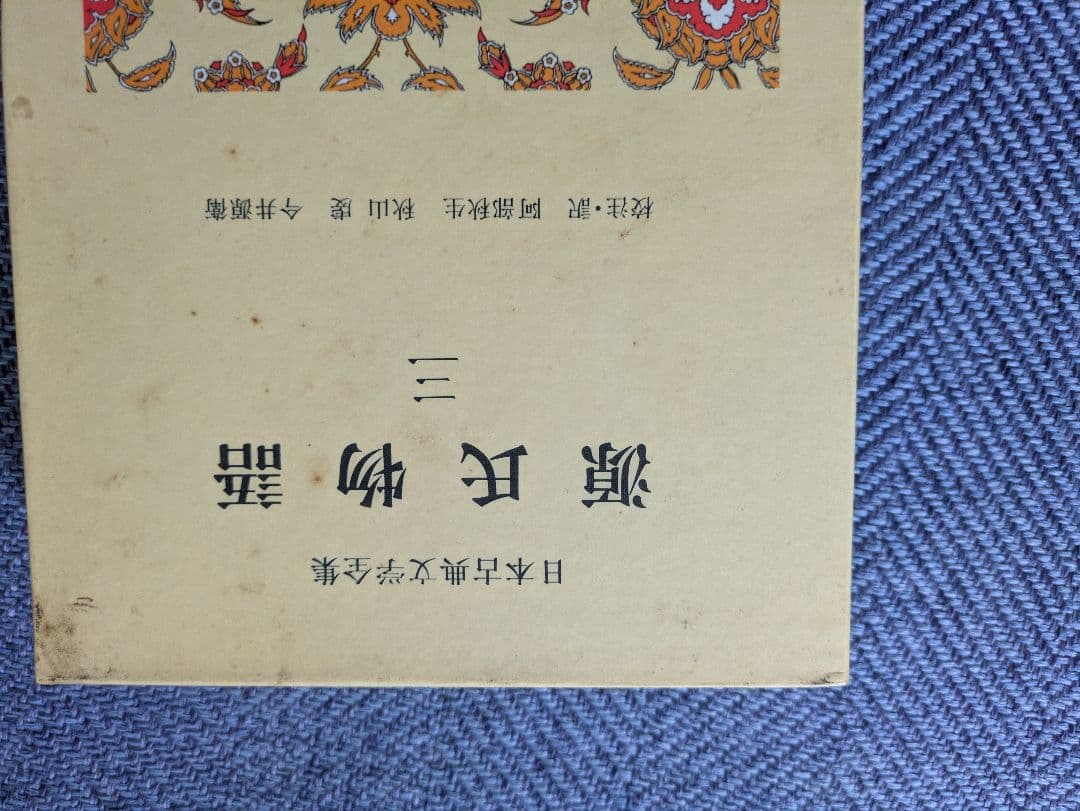 日本古典文学全集
源氏物語
三
校注・訳 阿部秋生 秋山 虔 今井源衛